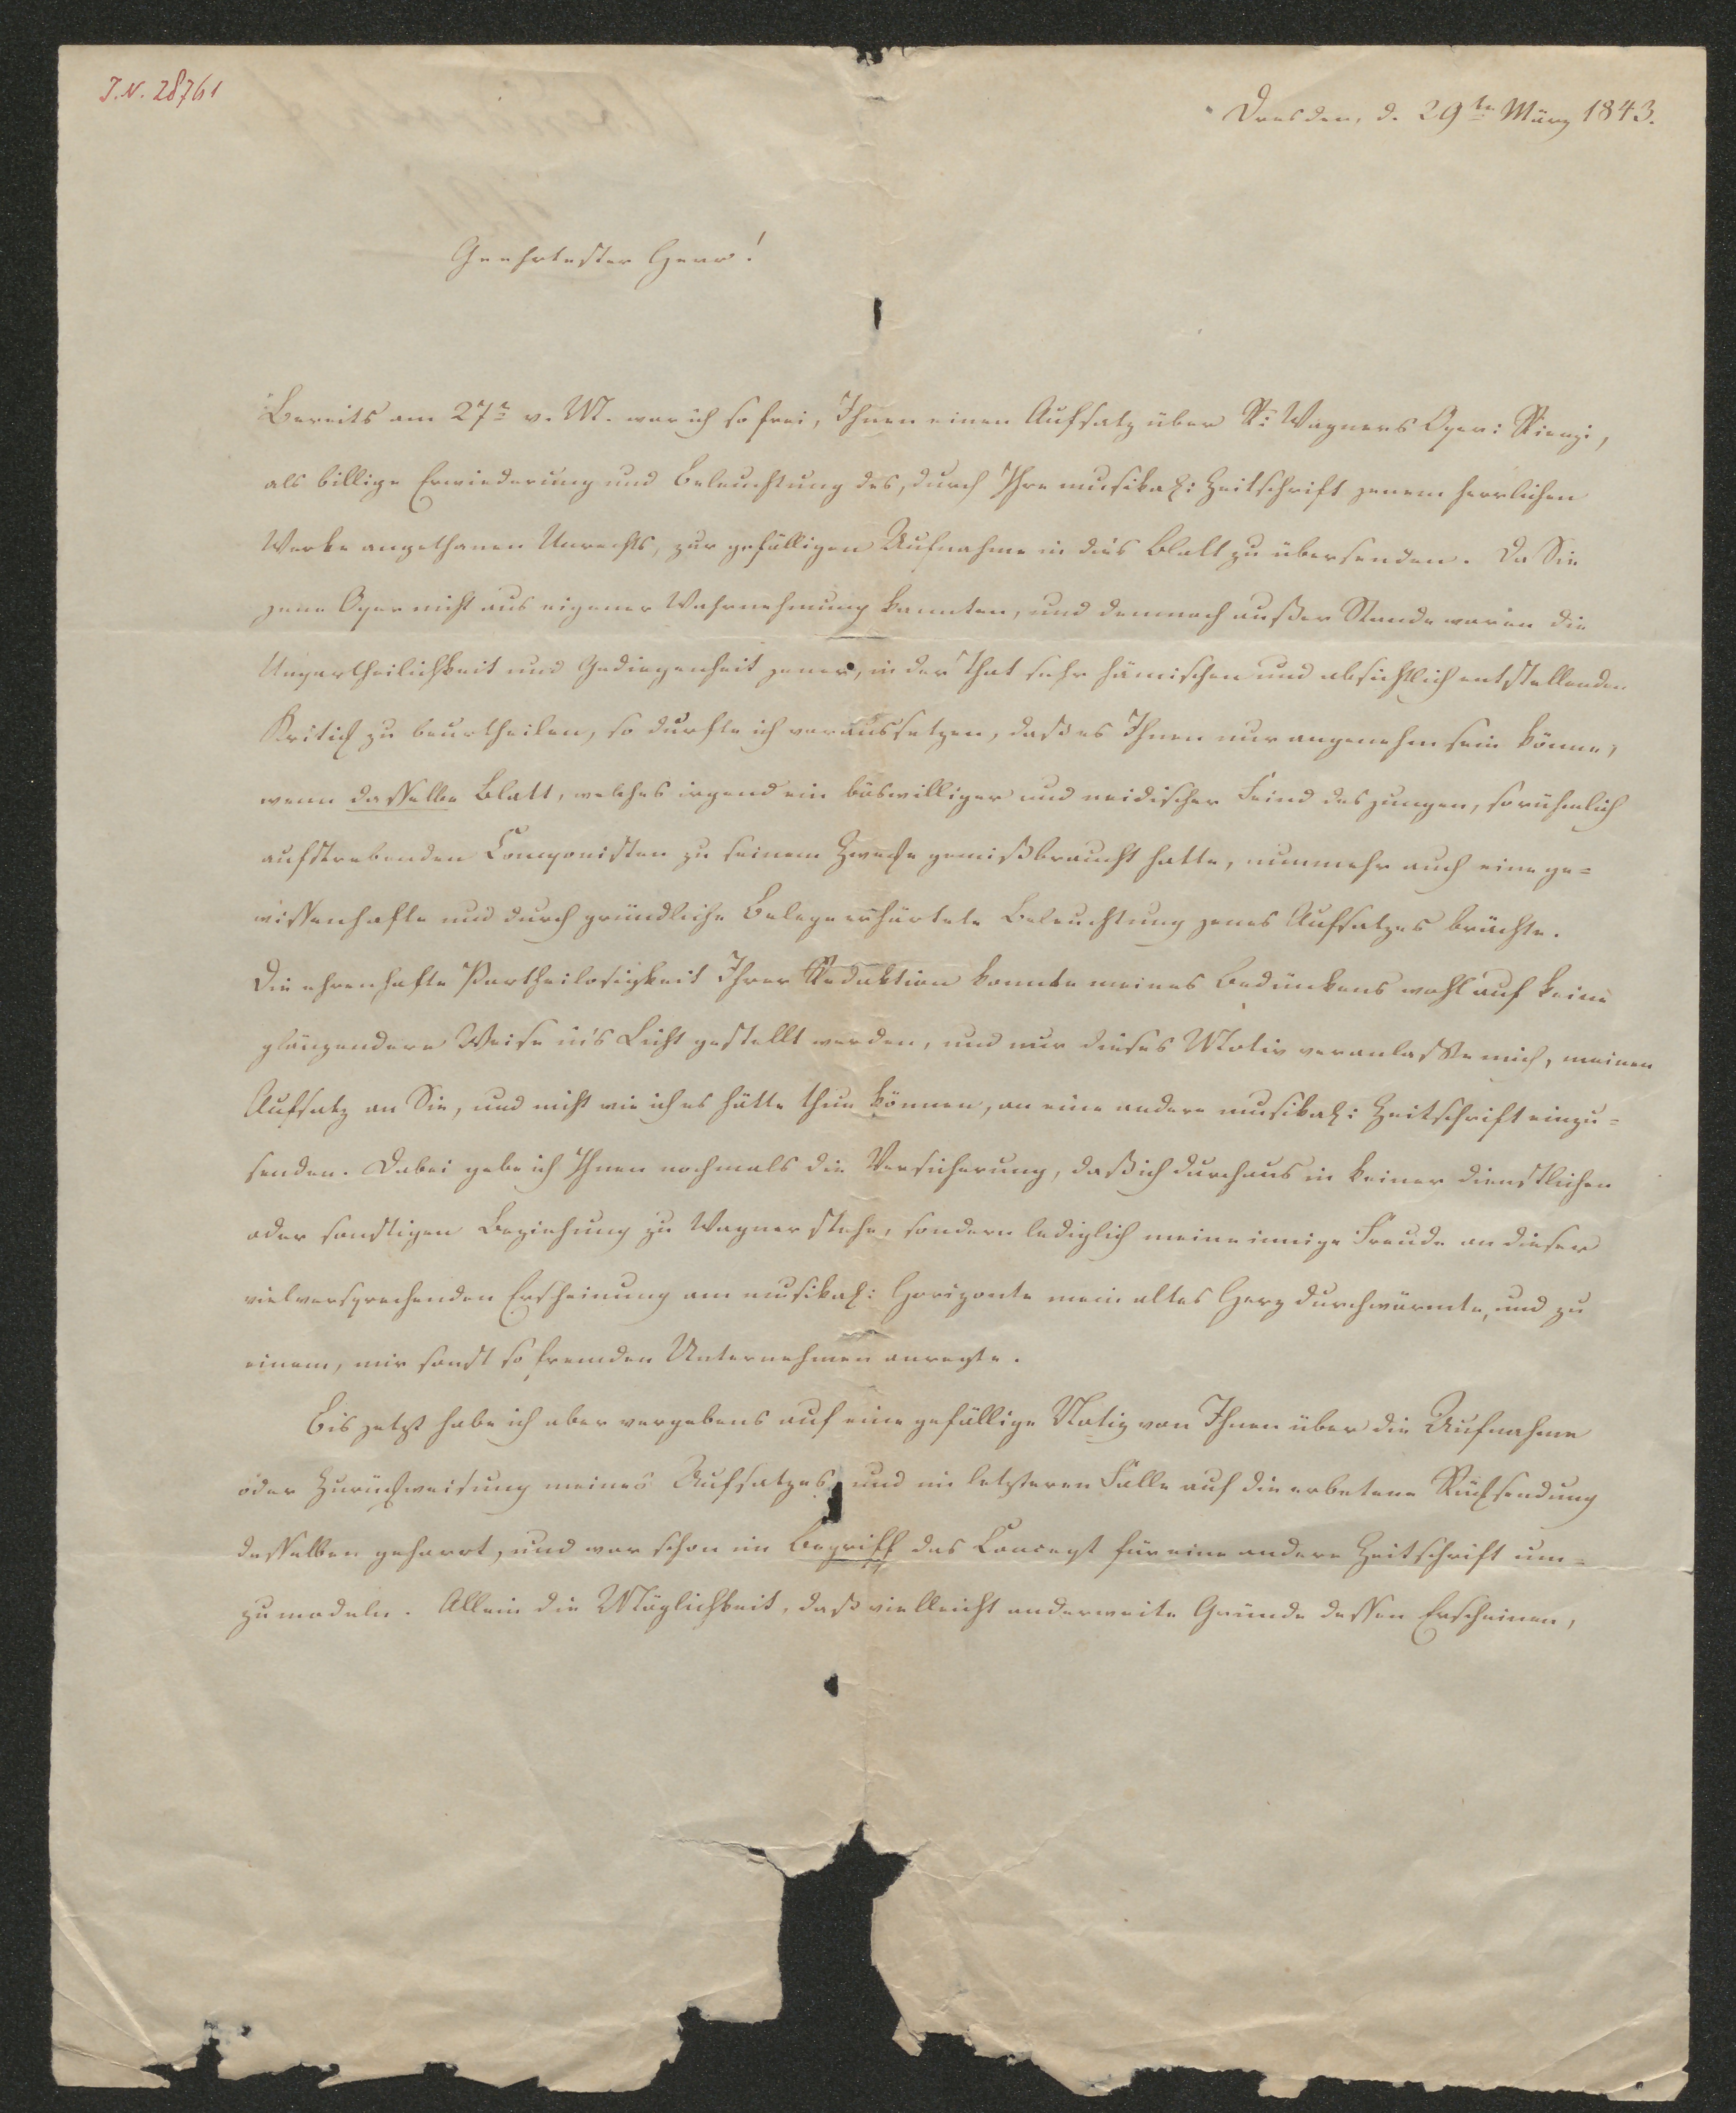 J.N. 28761
Dresden, d. 29ten März 1843.
Geehrtester Herr!
Bereits am 27n v. M. war ich so frei, Ihnen einen Aufsatz über R: Wagners Oper: Rienzi,
als billige Erwiederung und Beleuchtung des, durch Ihre musikal: Zeitschrift jenem herrlichen
Werke angethanen Unrechts, zur gefälligen Aufnahme in dies Blatt zu übersenden. Da Sie
jene Oper nicht aus eigener Wahrnehmung kannten, und demnach außer Stande waren die
Unpartheilichkeit und Gediegenheit jener, in der That sehr hämischen und absichtlich entstellenden
Kritick zu beurtheilen, so durfte ich voraussetzen, daß es Ihnen nur angenehm sein könne,
wenn dasselbe Blatt, welches irgend ein böswilliger und neidischer Feind des jungen, so rühmlich
aufstrebenden Componisten zu seinem Zwecke gemißbraucht hatte, nunmehr auch eine ge=
wissenhafte und durch gründliche Belege erhärtete Beleuchtung jenes Aufsatzes brächte.
Die ehrenhafte Partheilosigkeit Ihrer Redaktion konnte meines Bedünkens wohl auf keine
glänzendere Weise in's Licht gestellt werden, und nur dieses Motiv veranlasste mich, meinen
Aufsatz an Sie, und nicht wie ich es hätte thun können, an eine andere musikal: Zeitschrift einzu=
senden. Dabei gebe ich Ihnen nochmals die Versicherung, daß ich durchaus in keiner dienstlichen
oder sonstigen Beziehung zu Wagner stehe, sondern lediglich meine innige Freude an dieser
vielversprechenden Erscheinung am musikal: Horizonte mein altes Herz durchwärmte, und zu
einem, mir sonst so fremden Unternehmen anregte.
Bis jetzt habe ich aber vergebens auf eine gefällige Notiz von Ihnen über die Aufnahme
oder Zurückweisung meines Aufsatzes, und im letzteren Falle auf die erbetene Rücksendung
desselben geharrt, und war schon im Begriff das Concept für eine andere Zeitschrift um=
zu modeln. Allein die Möglichkeit, daß vielleicht anderweite Gründe dessen Erscheinen,